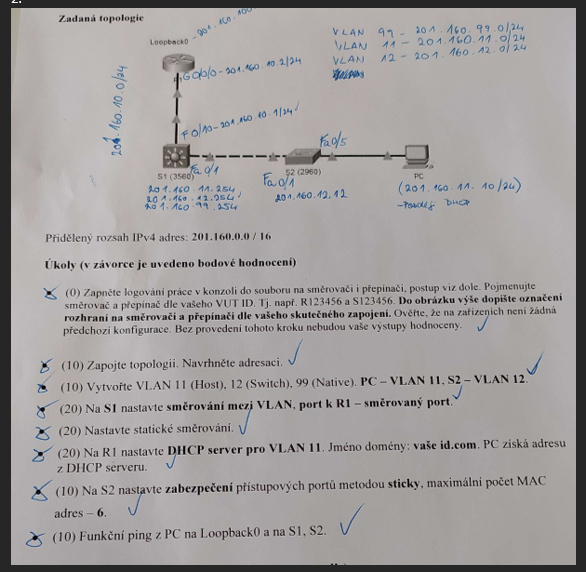 2.
Zadaná topologie
Loopback0 - 201.160.100.
VLAN 99 - 201.160.99.0/24
VLAN 11 - 201.160.11.0/24
VLAN 12 - 201.160.12.0/24
G0/0/0 - 201.160.10.2/24
201.160.10.0/24
F0/10 - 201.160.10.1/24
Fa0/5
S1 (3560)
Fa0/1
S2 (2960)
PC
Fa0/1
201.160.11.254
201.160.12.254
201.160.99.254
201.160.12.12
(201.160.11.10/24)
DHCP
Přidělený rozsah IPv4 adres: 201.160.0.0 / 16
Úkoly (v závorce je uvedeno bodové hodnocení)
(0) Zapněte logování práce v konzoli do souboru na směrovači i přepínači, postup viz dole. Pojmenujte
směrovač a přepínač dle vašeho VUT ID. Tj. např. R123456 a S123456. Do obrázku výše dopište označení
rozhraní na směrovači a přepínači dle vašeho skutečného zapojení. Ověřte, že na zařízeních není žádná
předchozí konfigurace. Bez provedení tohoto kroku nebudou vaše výstupy hodnoceny.
(10) Zapojte topologii. Navrhněte adresaci.
(10) Vytvořte VLAN 11 (Host), 12 (Switch), 99 (Native). PC – VLAN 11, S2 – VLAN 12.
(20) Na S1 nastavte směrování mezi VLAN, port k R1 – směrovaný port.
(20) Nastavte statické směrování.
(20) Na R1 nastavte DHCP server pro VLAN 11. Jméno domény: vaše id.com. PC získá adresu
z DHCP serveru.
(10) Na S2 nastavte zabezpečení přístupových portů metodou sticky, maximální počet MAC
adres – 6.
(10) Funkční ping z PC na Loopback0 a na S1, S2.